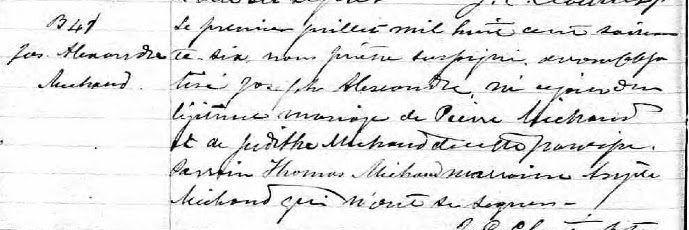 B 41
Jos. Alexandre
Michaud.
Le premier juillet mil huit cent soixan
te-six, nous prêtre soussigné, avons bap
tisé Joseph Alexandre, né ce jour du
légitime mariage de Pierre Michaud
et de Judithe Michaud de cette paroisse.
Parrain Thomas Michaud marraine
Michaud qui n'ont su signer.